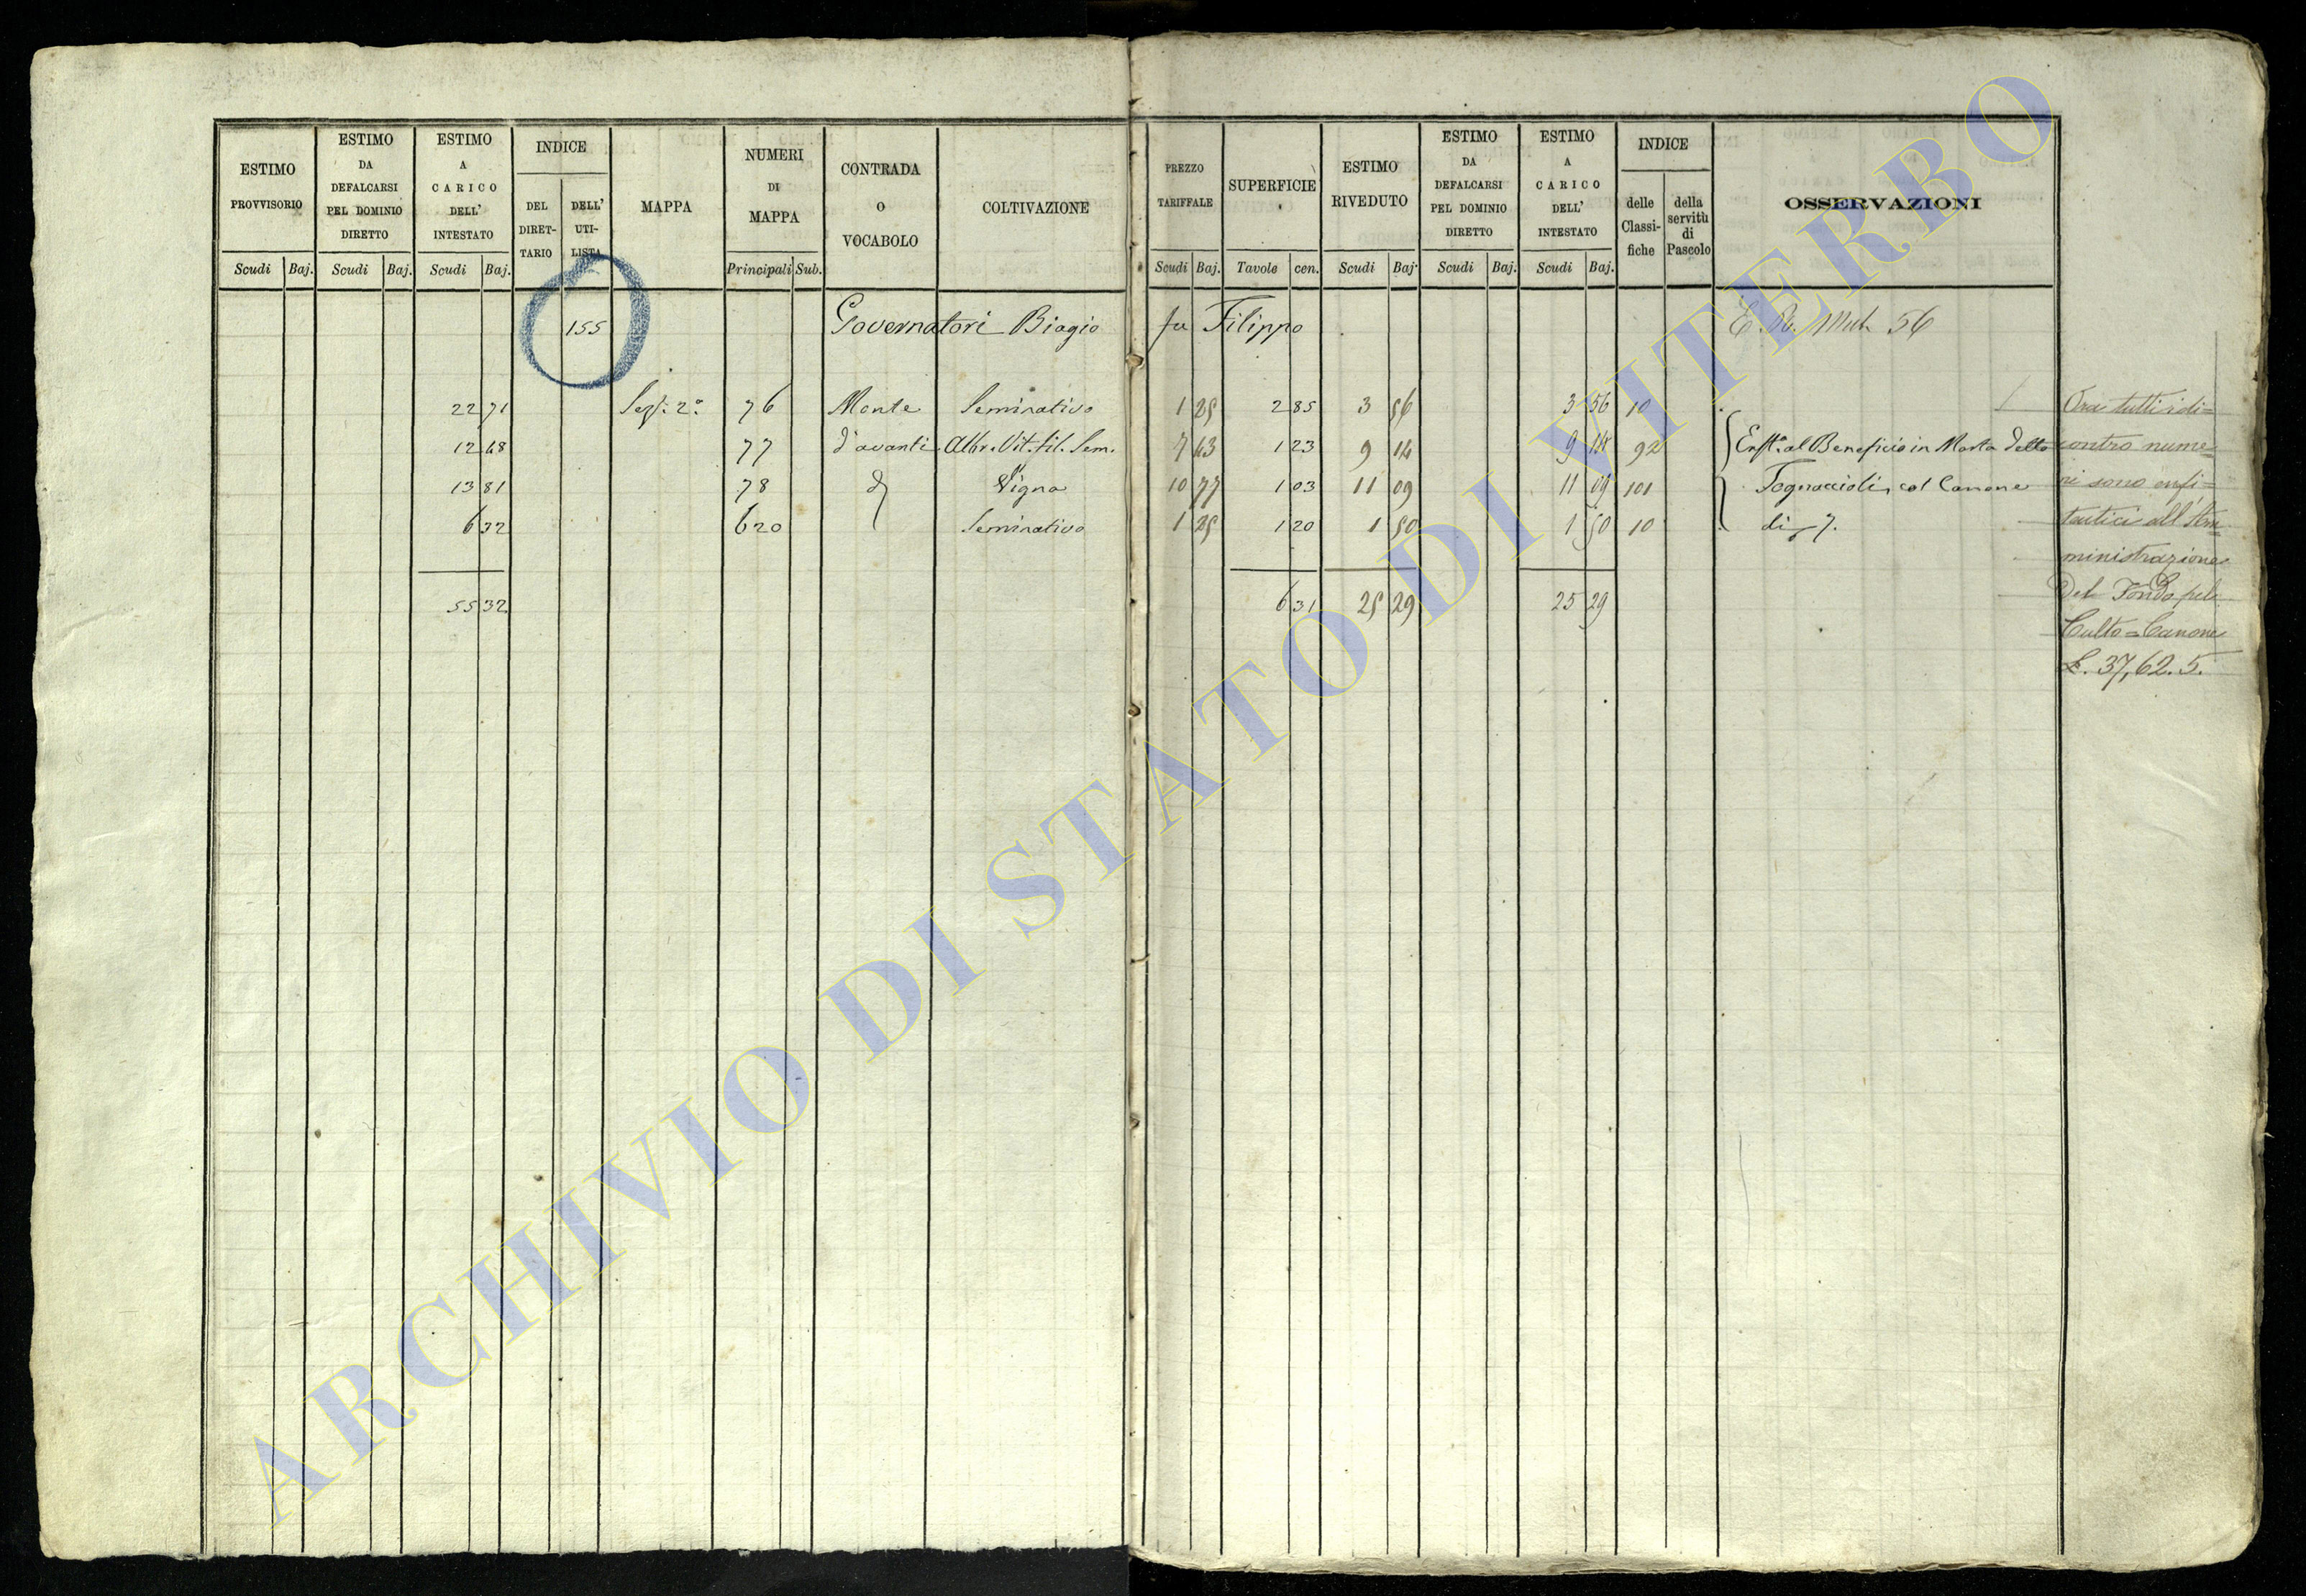 ESTIMO PROVVISORIO
ESTIMO DA DEFALCARSI PEL DOMINIO DIRETTO
ESTIMO A CARICO DELL' INTESTATO
INDICE
DEL DIRET-TARIO
DELL' UTI-LISTA
MAPPA
NUMERI DI MAPPA
CONTRADA O VOCABOLO
COLTIVAZIONE
PREZZO TARIFFALE
SUPERFICIE
ESTIMO RIVEDUTO
ESTIMO DA DEFALCARSI PEL DOMINIO DIRETTO
ESTIMO A CARICO DELL' INTESTATO
INDICE
delle Classi-fiche
della servitù di Pascolo
OSSERVAZIONI
Scudi Baj. Scudi Baj. Scudi Baj. Principali Sub. Scudi Baj. Tavole cen. Scudi Baj. Scudi Baj. Scudi Baj.
155 Governatori Biagio fu Filippo 56
22 71 Sez. 2ª 76 Monte Seminativo 1 25 2 85 3 56 3 56 10
12 48 77 d'avanti Alb. Vit. fil. Sem. 7 43 1 23 9 14 9 14 92 al Beneficio in Marta detto
13 81 78 Vigna 10 77 1 03 11 09 11 09 101 col Canone
6 32 620 Seminativo 1 25 1 20 1 50 1 50 10 di 7.
55 32 6 31 25 29 25 29
Ora tutti i di=
contro nume=
ri sono enfi=
teutici all'Am=
ministrazione
del Fondo pel
Culto = Canone
L. 37,62.5.
ARCHIVIO DI STATO DI VITERBO